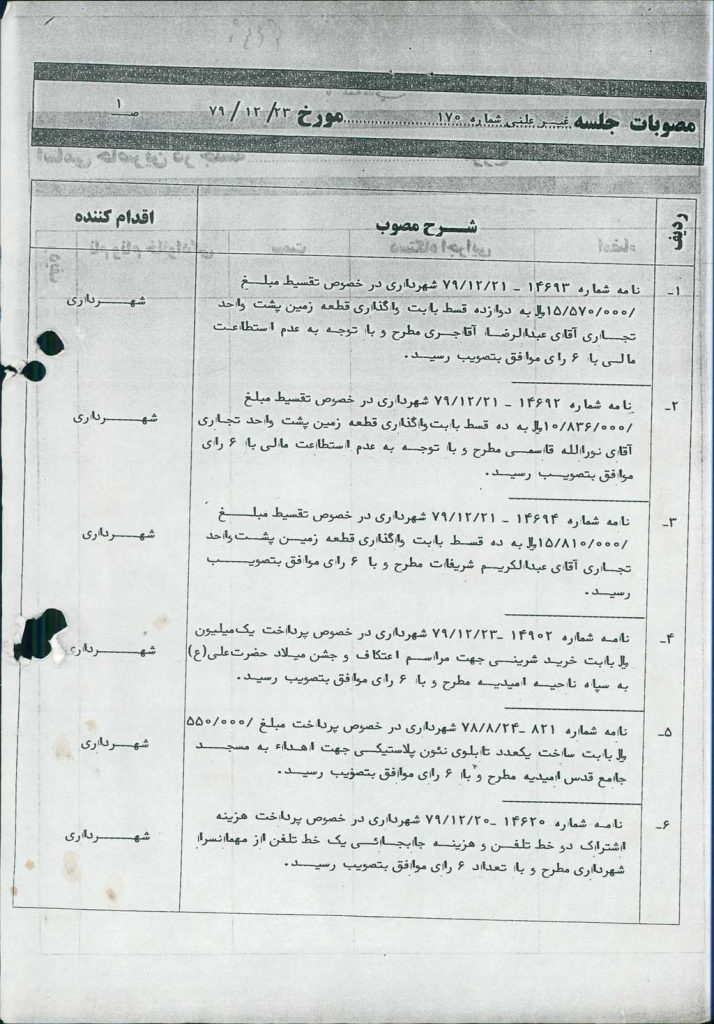 مصوبات جلسه غیر علنی شماره ۱۷۰ مورخ ۷۹/۱۲/۲۳ صـ ۱
ردیف شـــرح مصوب اقدام کننده
۱ـ نامه شماره ۱۴۶۹۳ - ۷۹/۱۲/۲۱ شهرداری در خصوص تقسیط مبلغ
۱۵/۵۷۰/۰۰۰/ریال به دوازده قسط بابت واگذاری قطعه زمین پشت واحد شهــــرداری
تجاری آقای عبدالرضا آقاجری مطرح و با توجه به عدم استطاعت
مالی با ۶ رای موافق بتصویب رسید.
۲ـ نامه شماره ۱۴۶۹۲ - ۷۹/۱۲/۲۱ شهرداری در خصوص تقسیط مبلغ
۱۰/۸۳۶/۰۰۰/ریال به ده قسط بابت واگذاری قطعه زمین پشت واحد تجاری شهــــرداری
آقای نورالله قاسمی مطرح و با توجه به عدم استطاعت مالی با ۶ رای
موافق بتصویب رسید.
۳ـ نامه شماره ۱۴۶۹۴ - ۷۹/۱۲/۲۱ شهرداری در خصوص تقسیط مبلغ
۱۵/۸۱۰/۰۰۰/ریال به ده قسط بابت واگذاری قطعه زمین پشت واحد شهــــرداری
تجاری آقای عبدالکریم شریفات مطرح و با ۶ رای موافق بتصویب
رسید.
۴ـ نامه شماره ۱۴۹۰۲ -۷۹/۱۲/۲۳ شهرداری در خصوص پرداخت یک میلیون
ریال بابت خرید شیرینی جهت مراسم اعتکاف و جشن میلاد حضرت علی(ع) شهــــرداری
به سپاه ناحیه امیدیه مطرح و با ۶ رای موافق بتصویب رسید.
۵ـ نامه شماره ۸۲۱ -۷۸/۸/۲۴ شهرداری در خصوص پرداخت مبلغ /۵۵۰/۰۰۰
ریال بابت ساخت یکعدد تابلوی نئون پلاستیکی جهت اهداء به مسجد شهــــرداری
جامع قدس امیدیه مطرح و با ۶ رای موافق بتصویب رسید.
۶ـ نامه شماره ۱۴۶۲۰ -۷۹/۱۲/۲۰ شهرداری در خصوص پرداخت هزینه
اشتراک دو خط تلفن و هزینه جابجائی یک خط تلفن از مهمانسرا شهــــرداری
شهرداری مطرح و با تعداد ۶ رای موافق بتصویب رسید.